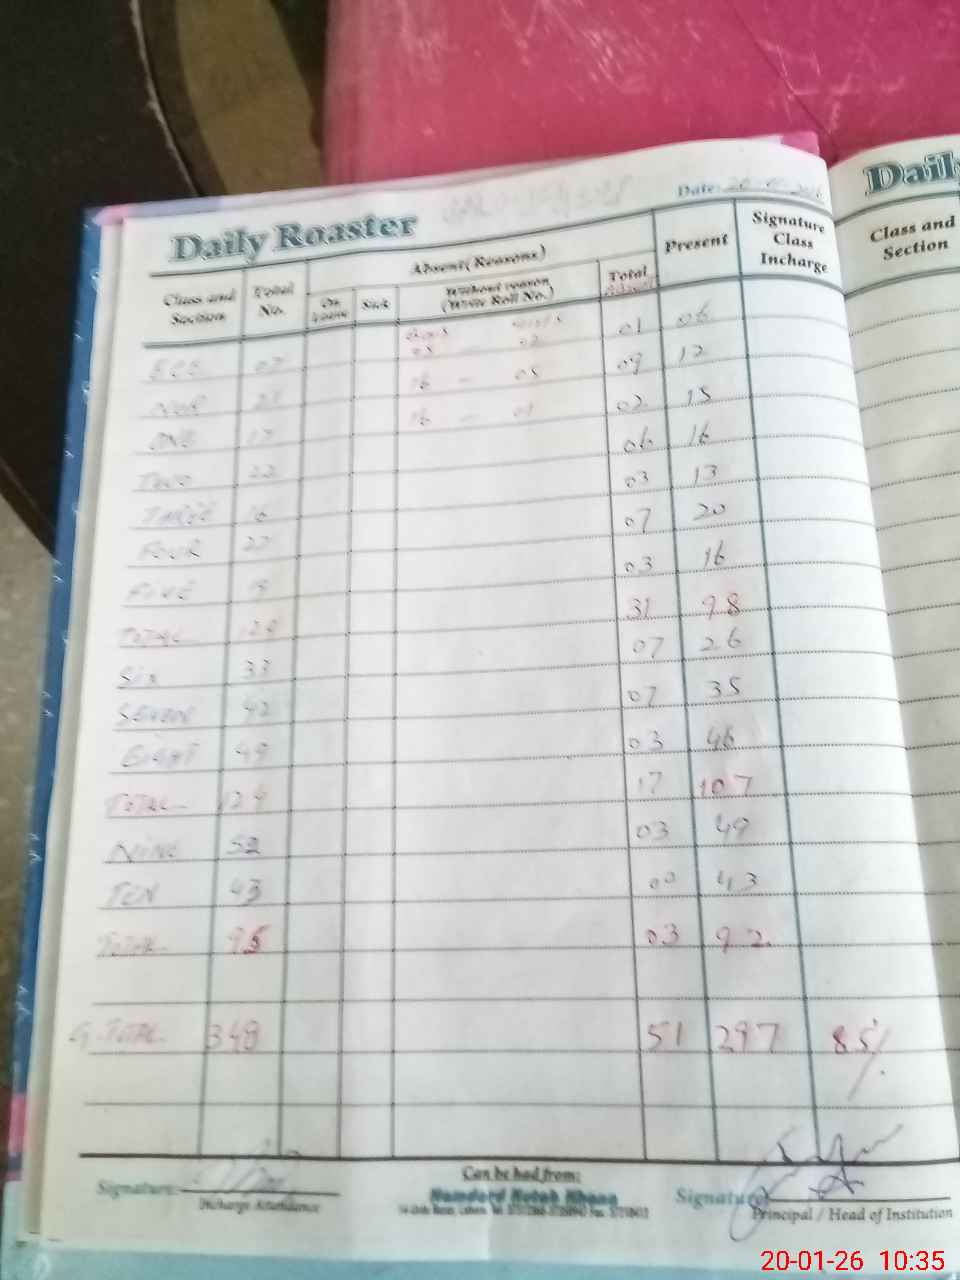 Daily Roaster
Date: 20
Class and Section Total No. Absent (Reasons) Present Signature Class Incharge
On Leave Sick Without reason (Write Roll No.) Total
ECE 07 05 02 01 06
NUR 21 16 — 05 09 12
ONE 17 16 — 01 02 15
TWO 22 06 16
THREE 16 03 13
FOUR 27 07 20
FIVE 19 03 16
TOTAL 129 31 98
Six 33 07 26
SEVEN 42 07 35
EIGHT 49 03 46
TOTAL 124 17 107
NINE 52 03 49
TEN 43 00 43
TOTAL 95 03 92
G. TOTAL 348 51 297 85%
Signature: Can be had from: Signature
Incharge Attendance Hamdard Kutab Khana Principal / Head of Institution
Daily
Class and Section
20-01-26 10:35